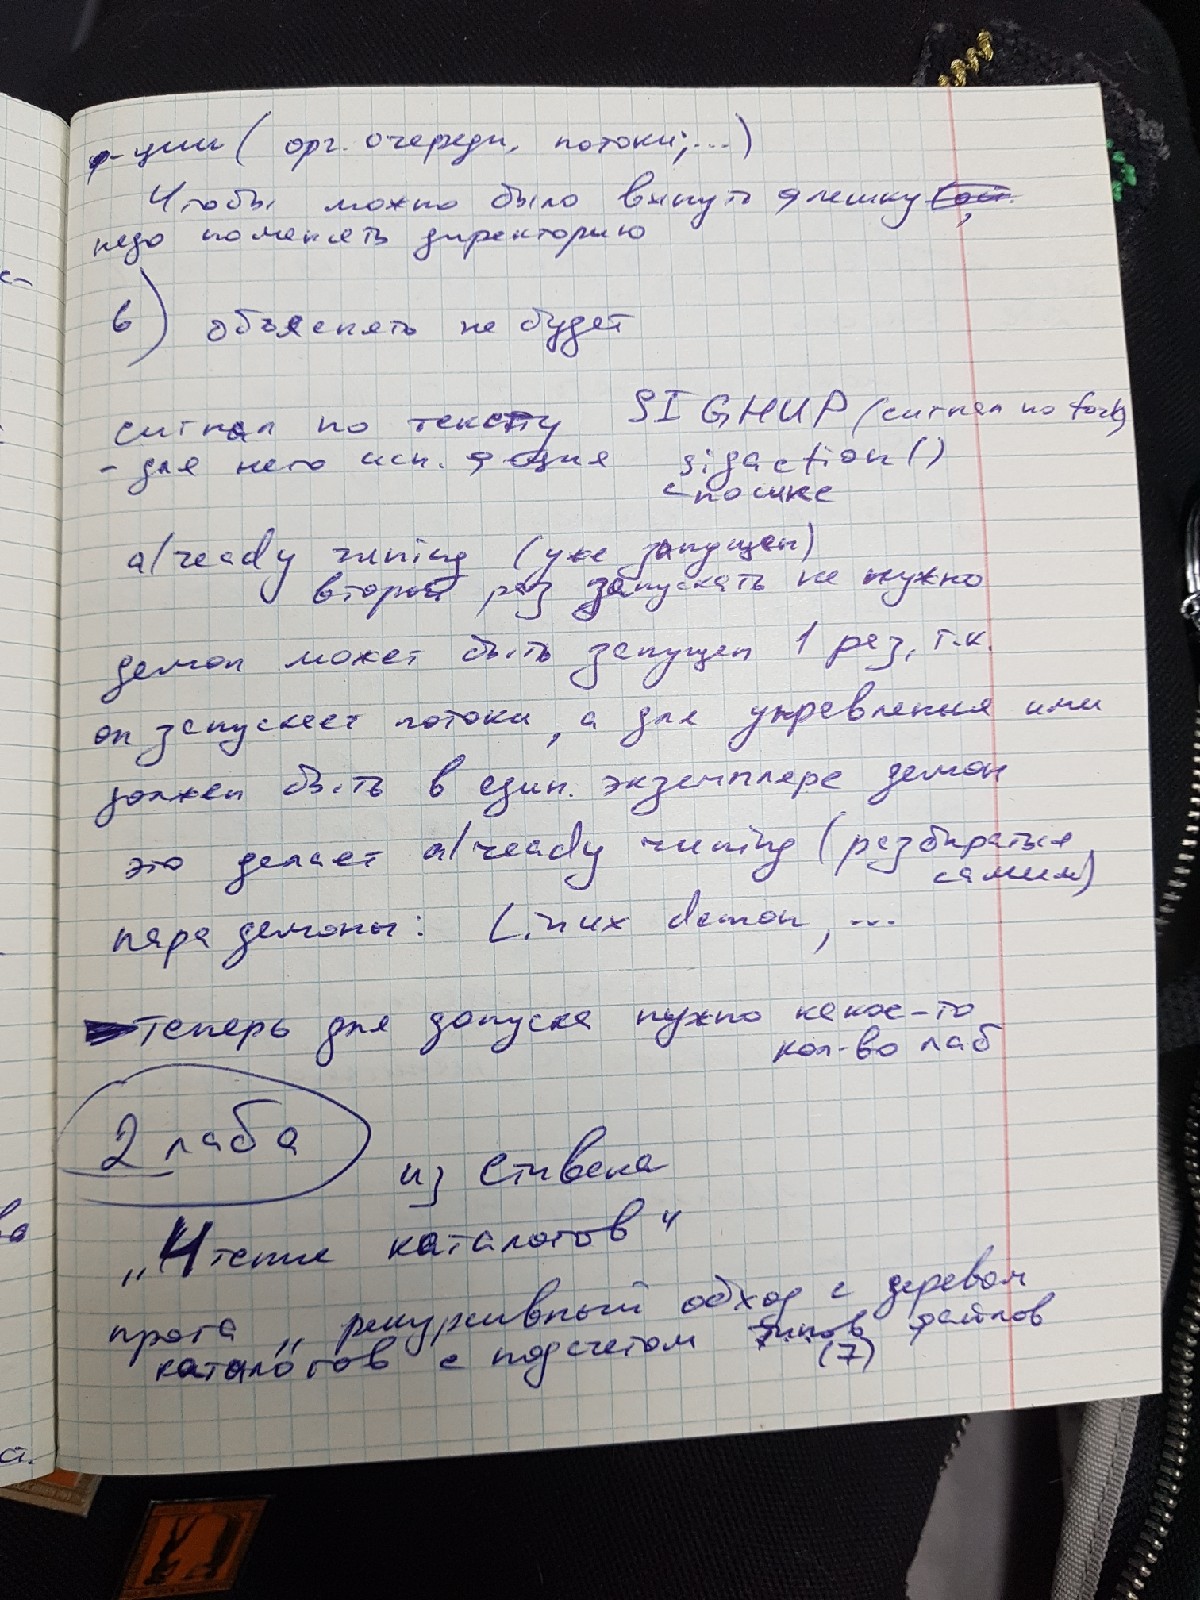 ф-ции ( орг. очереди, потоки; ... )
Чтобы можно было вынуть флешку,
надо поменять директорию
в) объяснять не будет
сигнал по тексту SIGHUP (сигнал по fork)
- для него исп. ф-ция sigaction()
alreаdy runing (уже запущен)
второй раз запускать не нужно
демон может быть запущен 1 раз, т.к.
он запускает потоки, а для управления ими
должен быть в един. экземпляре демон
это делает already runing (разбираться
самим)
пара демоны: Linux demon, ...
теперь для допуска нужно какое-то
кол-во лаб
2 лаба
из Стивена
„Чтение каталогов"
прога „рекурсивный обход с деревом
каталогов с подсчетом типов файлов
(7)